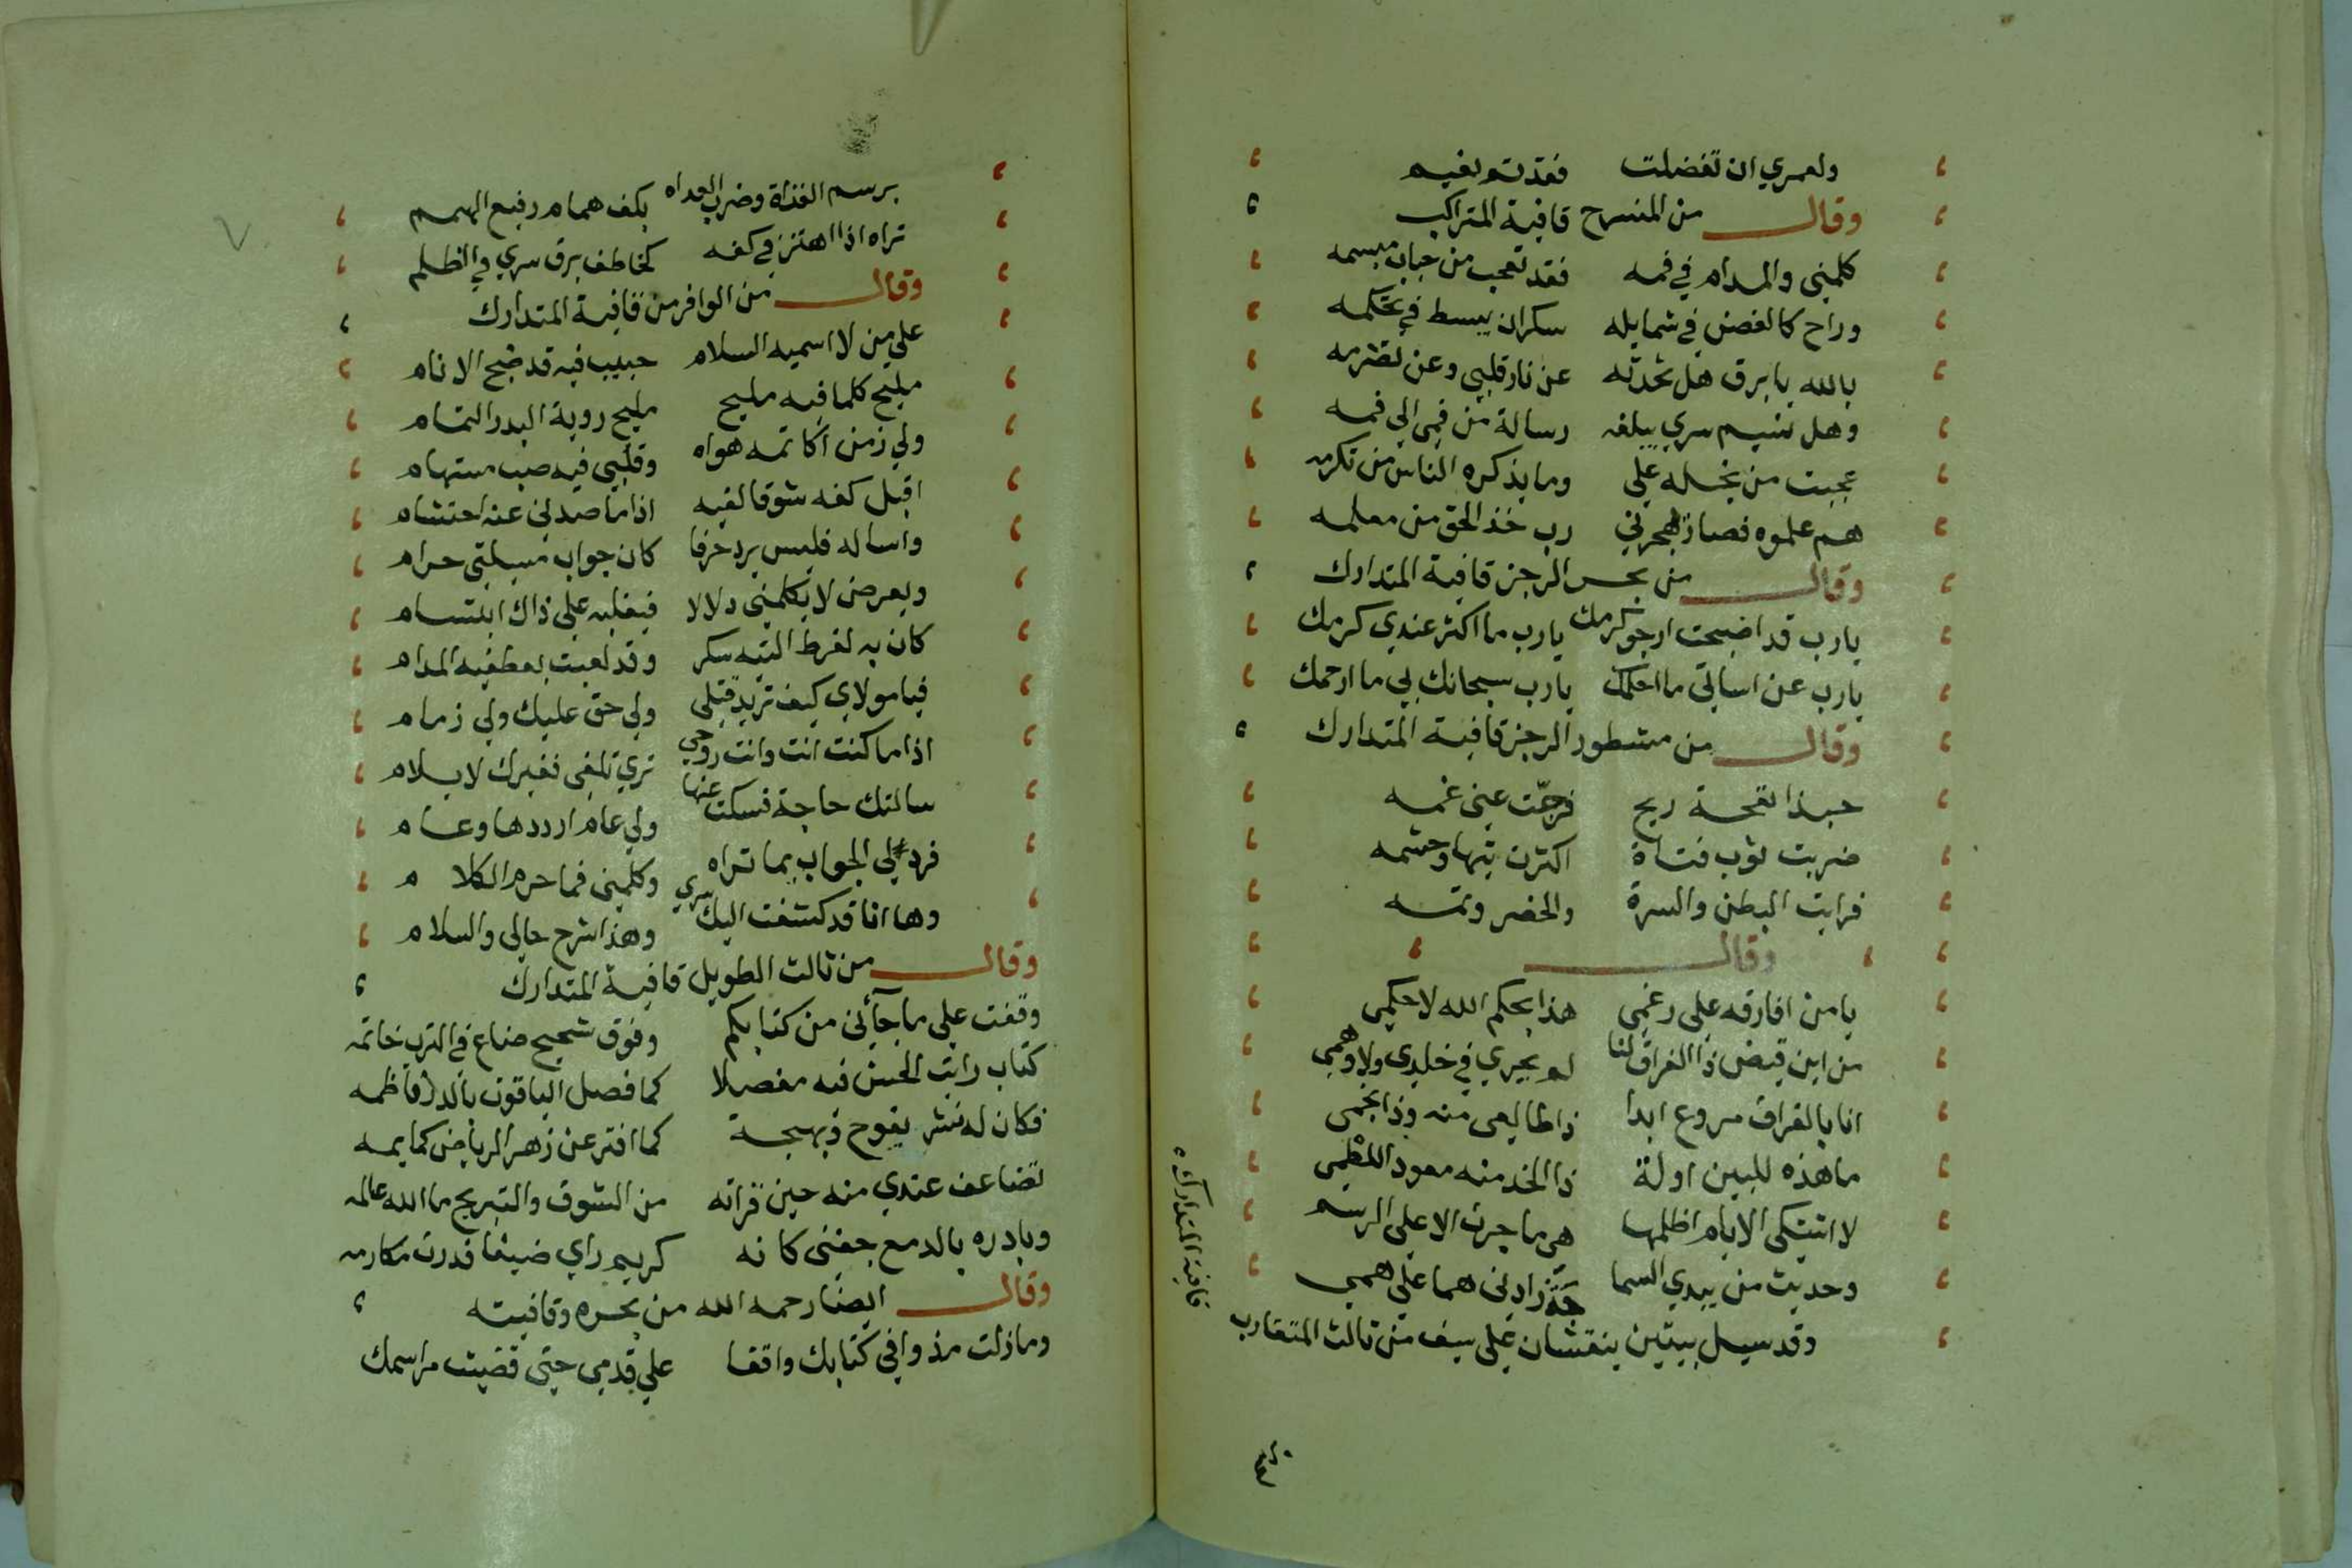 ولعمري ان تفضلت فقد تم نعيم
وقال من المنسرح قافية المتراكب
كلمني والمدام في فمه فقد تعجب من حباب مبسمه
وراح كالغصن في شمايله سكران يبسط في تحكمه
بالله يا برق هل تحدثه عن نار قلبي وعن تضرمه
وهل نسيم سري يبلغه رسالة من فمي الي فمه
عجبت من بخله علي وما يذكره الناس من تكرمه
هم علموه فصار يهجرني رب خذ الحق من معلمه
وقال من بحر الرجز قافية المتدارك
يارب قد اصبحت ارجو كرمك يارب ما اكثر عندي كرمك
يارب عن اساتي ما احلمك يارب سبحانك بي ما ارحمك
وقال من مشطور الرجز قافية المتدارك
حبذا نفحة ريح فرجت عني غمه
ضربت ثوب فتاة اكثرت تيها وحشمه
فرايت البطن والسرة والخصر وثمه
وقال
يا من افارقه علي رغمي هذا بحكم الله لا حكمي
من اين قيض ذا الفراق لنا لم يجري في خلدي ولا وهمي
انا بالفراق مروع ابدا ذا طالعي منه وذا نجمي
ما هذه للبين اولة ذا الخد منه معود اللطمي
لا اشتكي الايام اظلمها هي ما جرت الا علي الرسم
وحديث من يبدي السما جة زادني هما علي همي
وقد سيل بيتين ينقشان علي سيف من ثالث المتقارب
قافية المتدارك
برسم الغزاة وضرب العداه بكف همام رفيع الهمم
تراه اذا اهتز في كفه كخاطف برق سري في الظلم
وقال من الوافر من قافية المتدارك
علي من لا اسميه السلام حبيب فيه قد ضج الانام
مليح كلما فيه مليح مليح روية البدر التمام
ولي زمن اكاتمه هواه وقلبي فيه صب مستهام
اقبل كفه شوقا لفيه اذا ما صدني عنه احتشام
واساله فليس يرد حرفا كان جواب مسيلتي حرام
ويعرض لا يكلمني دلالا فيغلبه علي ذاك ابتسام
كان به لفرط التيه سكر وقد لعبت بعطفيه المدام
فيا مولاي كيف تريد قتلي ولي حق عليك ولي ذمام
اذا ما كنت انت وانت روحي تري تلفي فغيرك لا يلام
سالتك حاجة فسكت عنها ولي عام ارددها وعام
فرد لي الجواب بما تراه وكلمني فما حرم الكلام
وها انا قد كشفت اليك سري وهذا شرح حالي والسلام
وقال من ثالث الطويل قافية المتدارك
وقفت علي ما جآئني من كتابكم وقوف شحيح ضاع في الترب خاتمه
كتاب رايت الحسن فيه مفصلا كما فصل الياقوت بالدر ناظمه
فكان له نشر يفوح وبهجة كما افتر عن زهر الرياض كمايمه
تضاعف عندي منه حين قراته من الشوق والتبريح ما الله عالمه
وبادره بالدمع جفني كانه كريم راي ضيفا فدرت مكارمه
وقال ايضا رحمه الله من بحره وقافيته
وما زلت مذ وافي كتابك واقفا علي قدمي حتي قضيت مراسمك